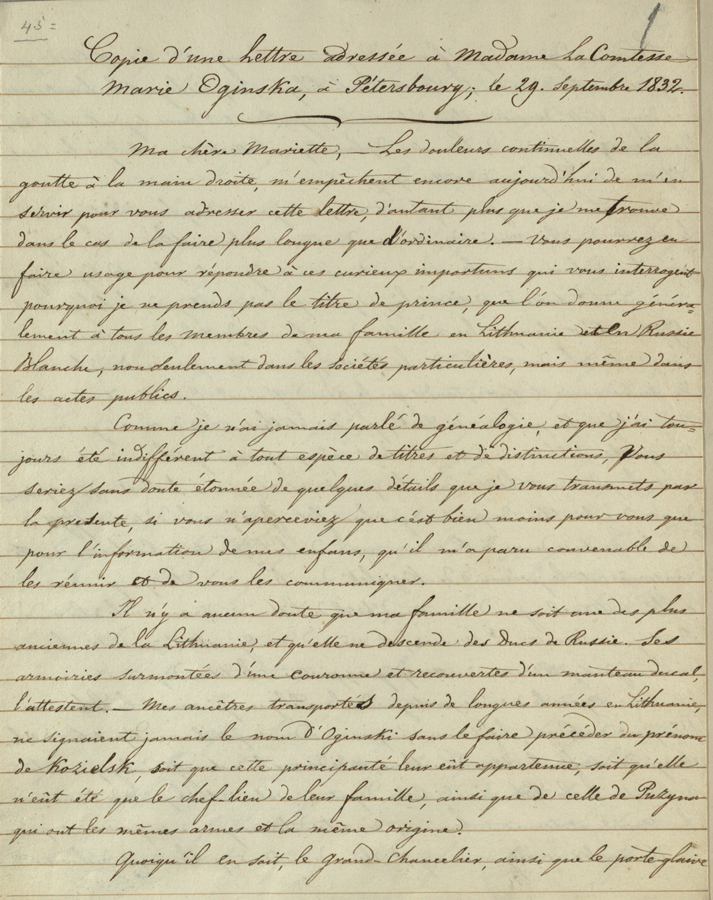 45=
1
Copie d'une lettre adressée à Madame La Comtesse
Marie Oginska, à Pétersbourg; le 29. Septembre 1832.
Ma chère Mariette, — Les douleurs continuelles de la
goutte à la main droite, m'empêchent encore aujourd'hui de m'en
servir pour vous adresser cette lettre, d'autant plus que je me trouve
dans le cas de la faire plus longue que d'ordinaire. — Vous pourrez en
faire usage pour répondre à ces curieux importuns qui vous interrogent
pourquoi je ne prends pas le titre de prince, que l'on donne généra=
lement à tous les membres de ma famille en Lithuanie et en Russie
Blanche, nonseulement dans les sociétés particulières, mais même dans
les actes publics.
Comme je n'ai jamais parlé de généalogie, et que j'ai tou=
jours été indifférent à tout espèce de titres et de distinctions, Vous
seriez sans doute étonnée de quelques détails que je vous transmets par
la présente, si vous n'aperceviez que c'est bien moins pour vous que
pour l'information de mes enfans, qu'il m'a paru convenable de
les réunir et de vous les communiquer.
Il n'y a aucun doute que ma famille ne soit une des plus
anciennes de la Lithuanie, et qu'elle ne descende des Ducs de Russie. Ses
armoiries surmontées d'une couronne et recouvertes d'un manteau ducal,
l'attestent. — Mes ancêtres transportés depuis de longues années en Lithuanie,
ne signaient jamais le nom d'Oginski sans le faire précéder du prénom
de Kozielsk soit que cette principauté leur eût appartenue, soit qu'elle
n'eût été que le chef-lieu de leur famille, ainsi que de celle de Puzyna
qui ont les mêmes armes et la même origine.
Quoiqu'il en soit, le Grand-Chancelier, ainsi que le porte-glaive